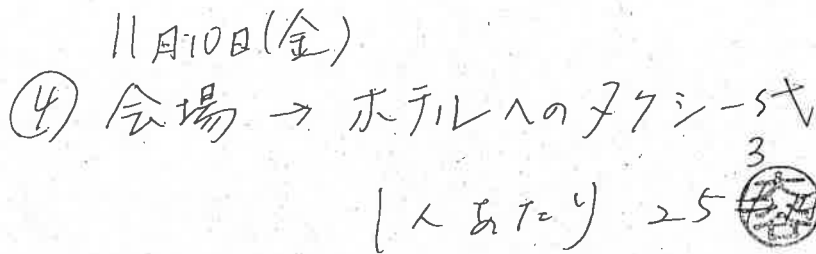 11月10日(金)
④ 会場 → ホテルへのタクシー代
3
1人あたり 25